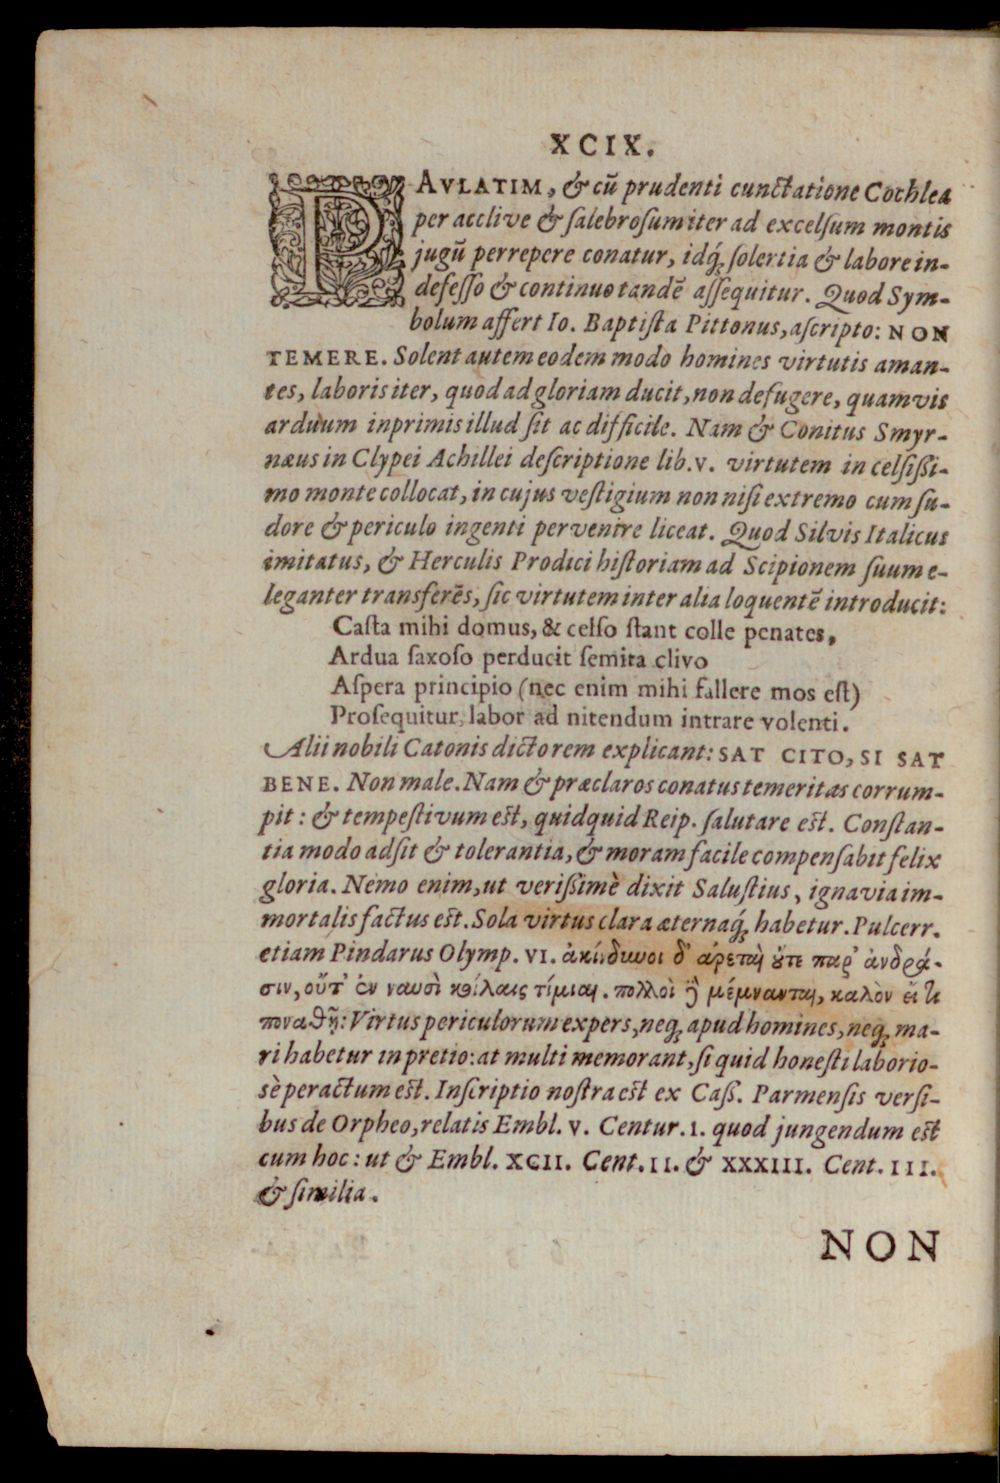 XCIX.
PAVLATIM, & cū prudenti cunctatione Cochlea
per acclive & ſalebroſum iter ad excelſum montis
jugū perrepere conatur, idq́; ſolertia & labore in-
defeſſo & continuo tandē aſſequitur. Quod Sym-
bolum affert Io. Baptiſta Pittonus, aſcripto: NON
TEMERE. Solent autem eodem modo homines virtutis aman-
tes, laboris iter, quod ad gloriam ducit, non defugere, quamvis
arduum inprimis illud ſit ac difficile. Nam & Conitus Smyr-
næus in Clypei Achillei deſcriptione lib. V. virtutem in celſißi-
mo monte collocat, in cujus veſtigium non niſi extremo cum ſu-
dore & periculo ingenti pervenire liceat. Quod Silvis Italicus
imitatus, & Herculis Prodici hiſtoriam ad Scipionem ſuum e-
leganter transferēs, ſic virtutem inter alia loquentē introducit:
Caſta mihi domus, & celſo ſtant colle penates,
Ardua ſaxoſo perducit ſemita clivo
Aſpera principio (nec enim mihi fallere mos eſt)
Proſequitur, labor ad nitendum intrare volenti.
Alii nobili Catonis dicto rem explicant: SAT CITO, SI SAT
BENE. Non male. Nam & præclaros conatus temeritas corrum-
pit: & tempeſtivum eſt, quidquid Reip. ſalutare eſt. Conſtan-
tia modo adſit & tolerantia, & moram facile compenſabit felix
gloria. Nemo enim, ut verißimè dixit Saluſtius, ignavia im-
mortalis factus eſt. Sola virtus clara æternaq́; habetur. Pulcerr.
etiam Pindarus Olymp. VI. ἀκίνδυνοι δ' ἀρεταὶ οὔτε παρ' ἀνδρά-
σιν, οὔτ' ἐν ναυσὶ κοίλαις τίμιαι. πολλοὶ δὲ μέμνανται, καλὸν εἴ τι
ποναθῇ: Virtus periculorum expers, neq; apud homines, neq; ma-
ri habetur in pretio: at multi memorant, ſi quid honeſti laborio-
sè peractum eſt. Inſcriptio noſtra eſt ex Caß. Parmenſis verſi-
bus de Orpheo, relatis Embl. V. Centur. I. quod jungendum eſt
cum hoc: ut & Embl. XCII. Cent. II. & XXXIII. Cent. III.
& ſimilia.
NON